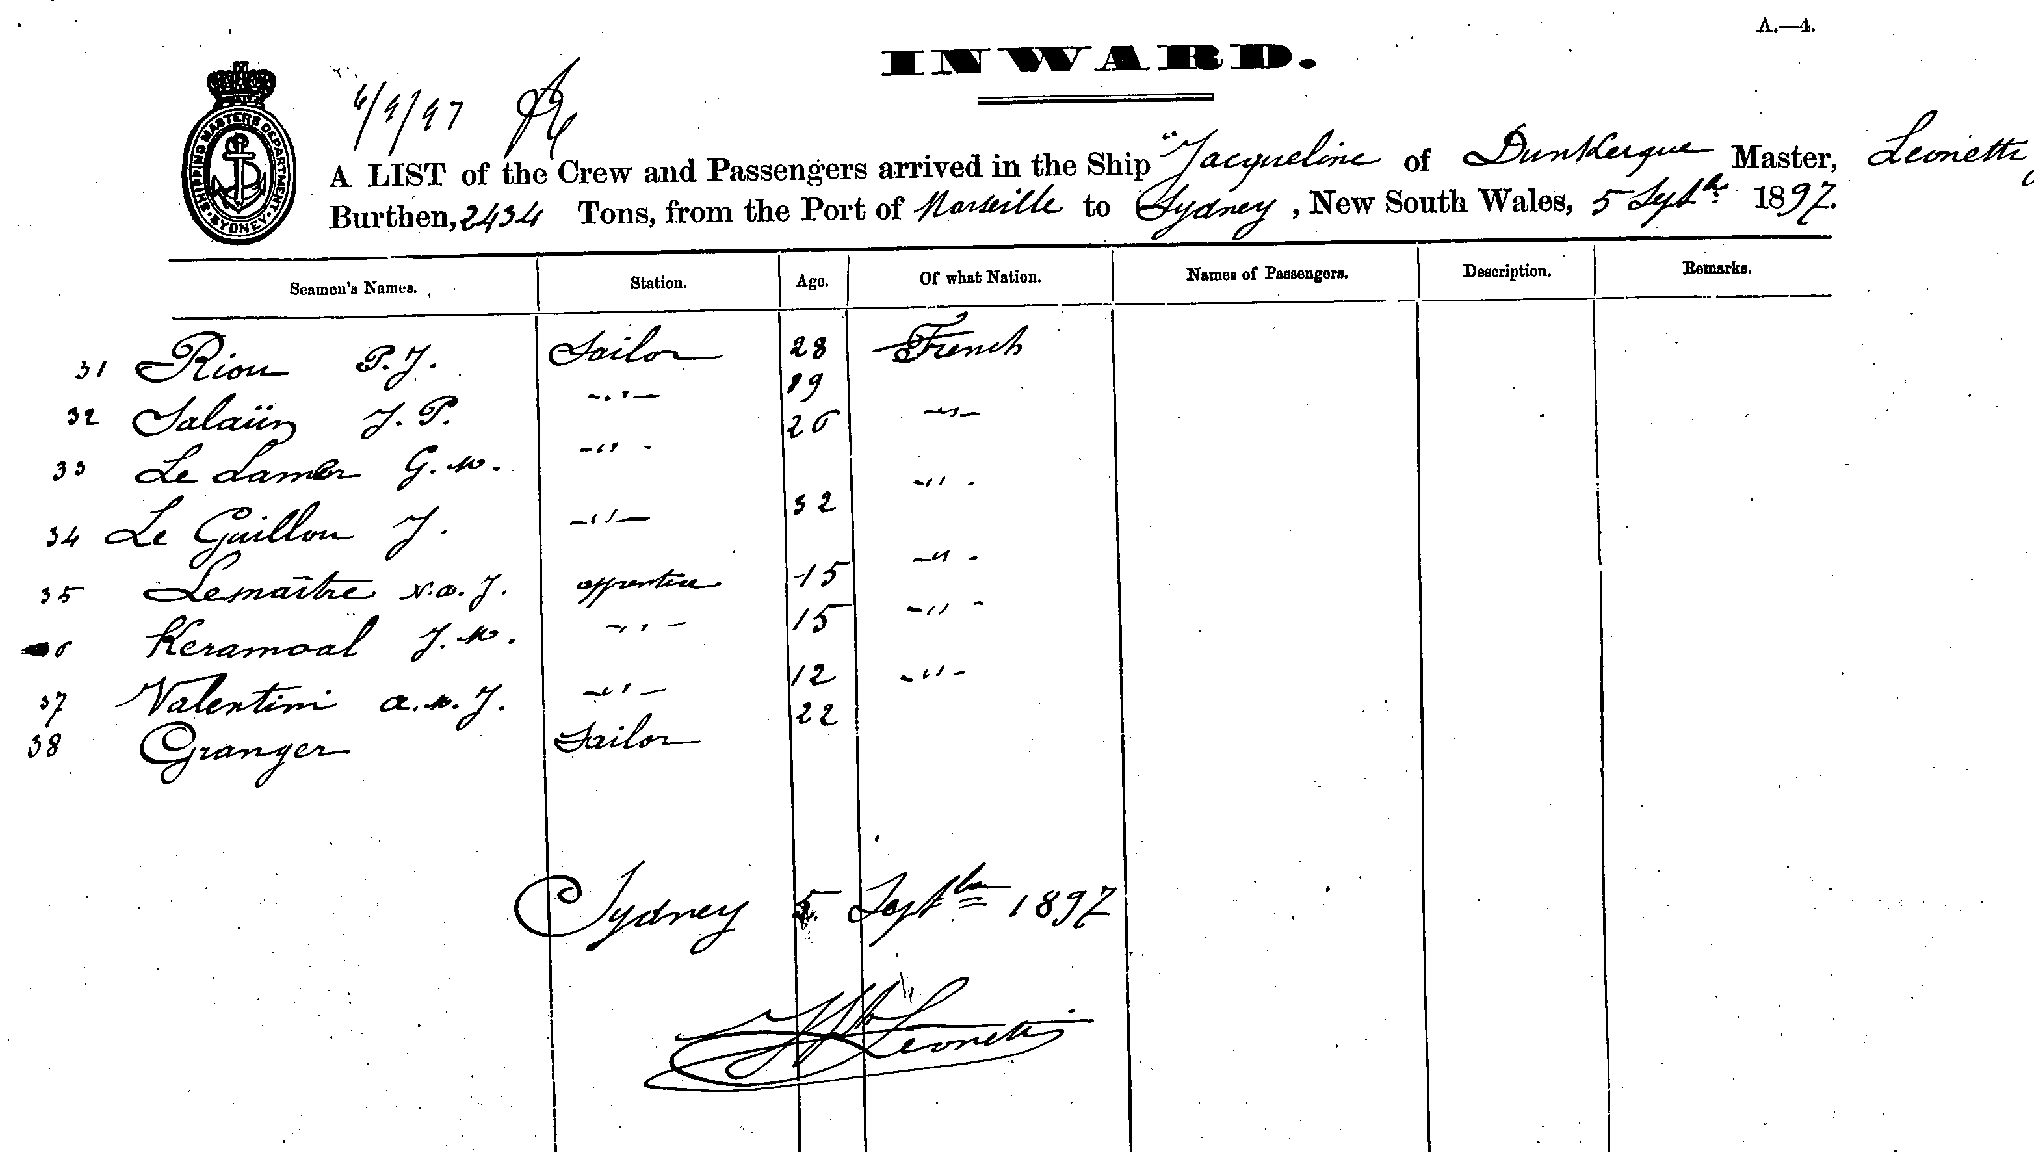 A.—4.
INWARD.
6/9/97
SHIPPING MASTERS DEPARTMENT SYDNEY
A LIST of the Crew and Passengers arrived in the Ship "Jacqueline of Dunkerque Master, Leonetti
Burthen, 2434 Tons, from the Port of Marseille to Sydney, New South Wales, 5 Septbr 1897.
Seamen's Names. Station. Age. Of what Nation. Names of Passengers. Description. Remarks.
31 Riou P. J. Sailor 28 French
32 Salaün J. P. -"- 19 -"-
33 Le Lamer G. M. -"- 26 -"-
34 Le Guillou J. -"- 32 -"-
35 Lemaître N. A. J. apprentice 15 -"-
36 Keramoal J. M. -"- 15 -"-
37 Valentini A. M. J. -"- 12 -"-
38 Granger Sailor 22
Sydney 5 Septber 1897
Leonetti